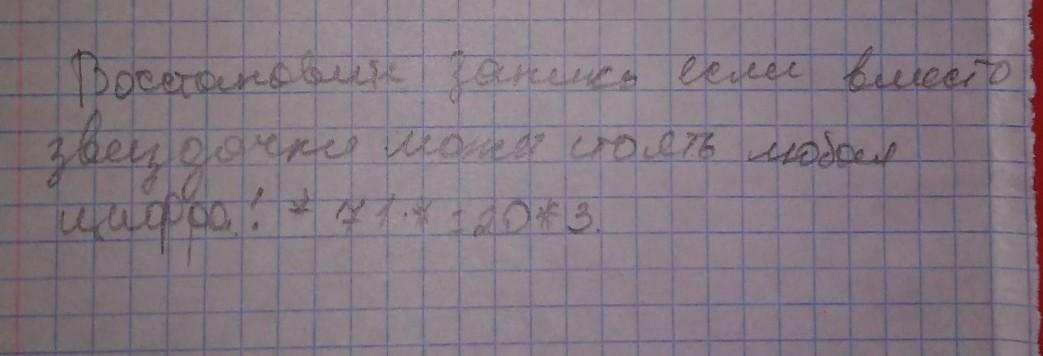 Востановите запись если вместо
звездочки может стоять любая
цифра! * 71·* = 20*3.